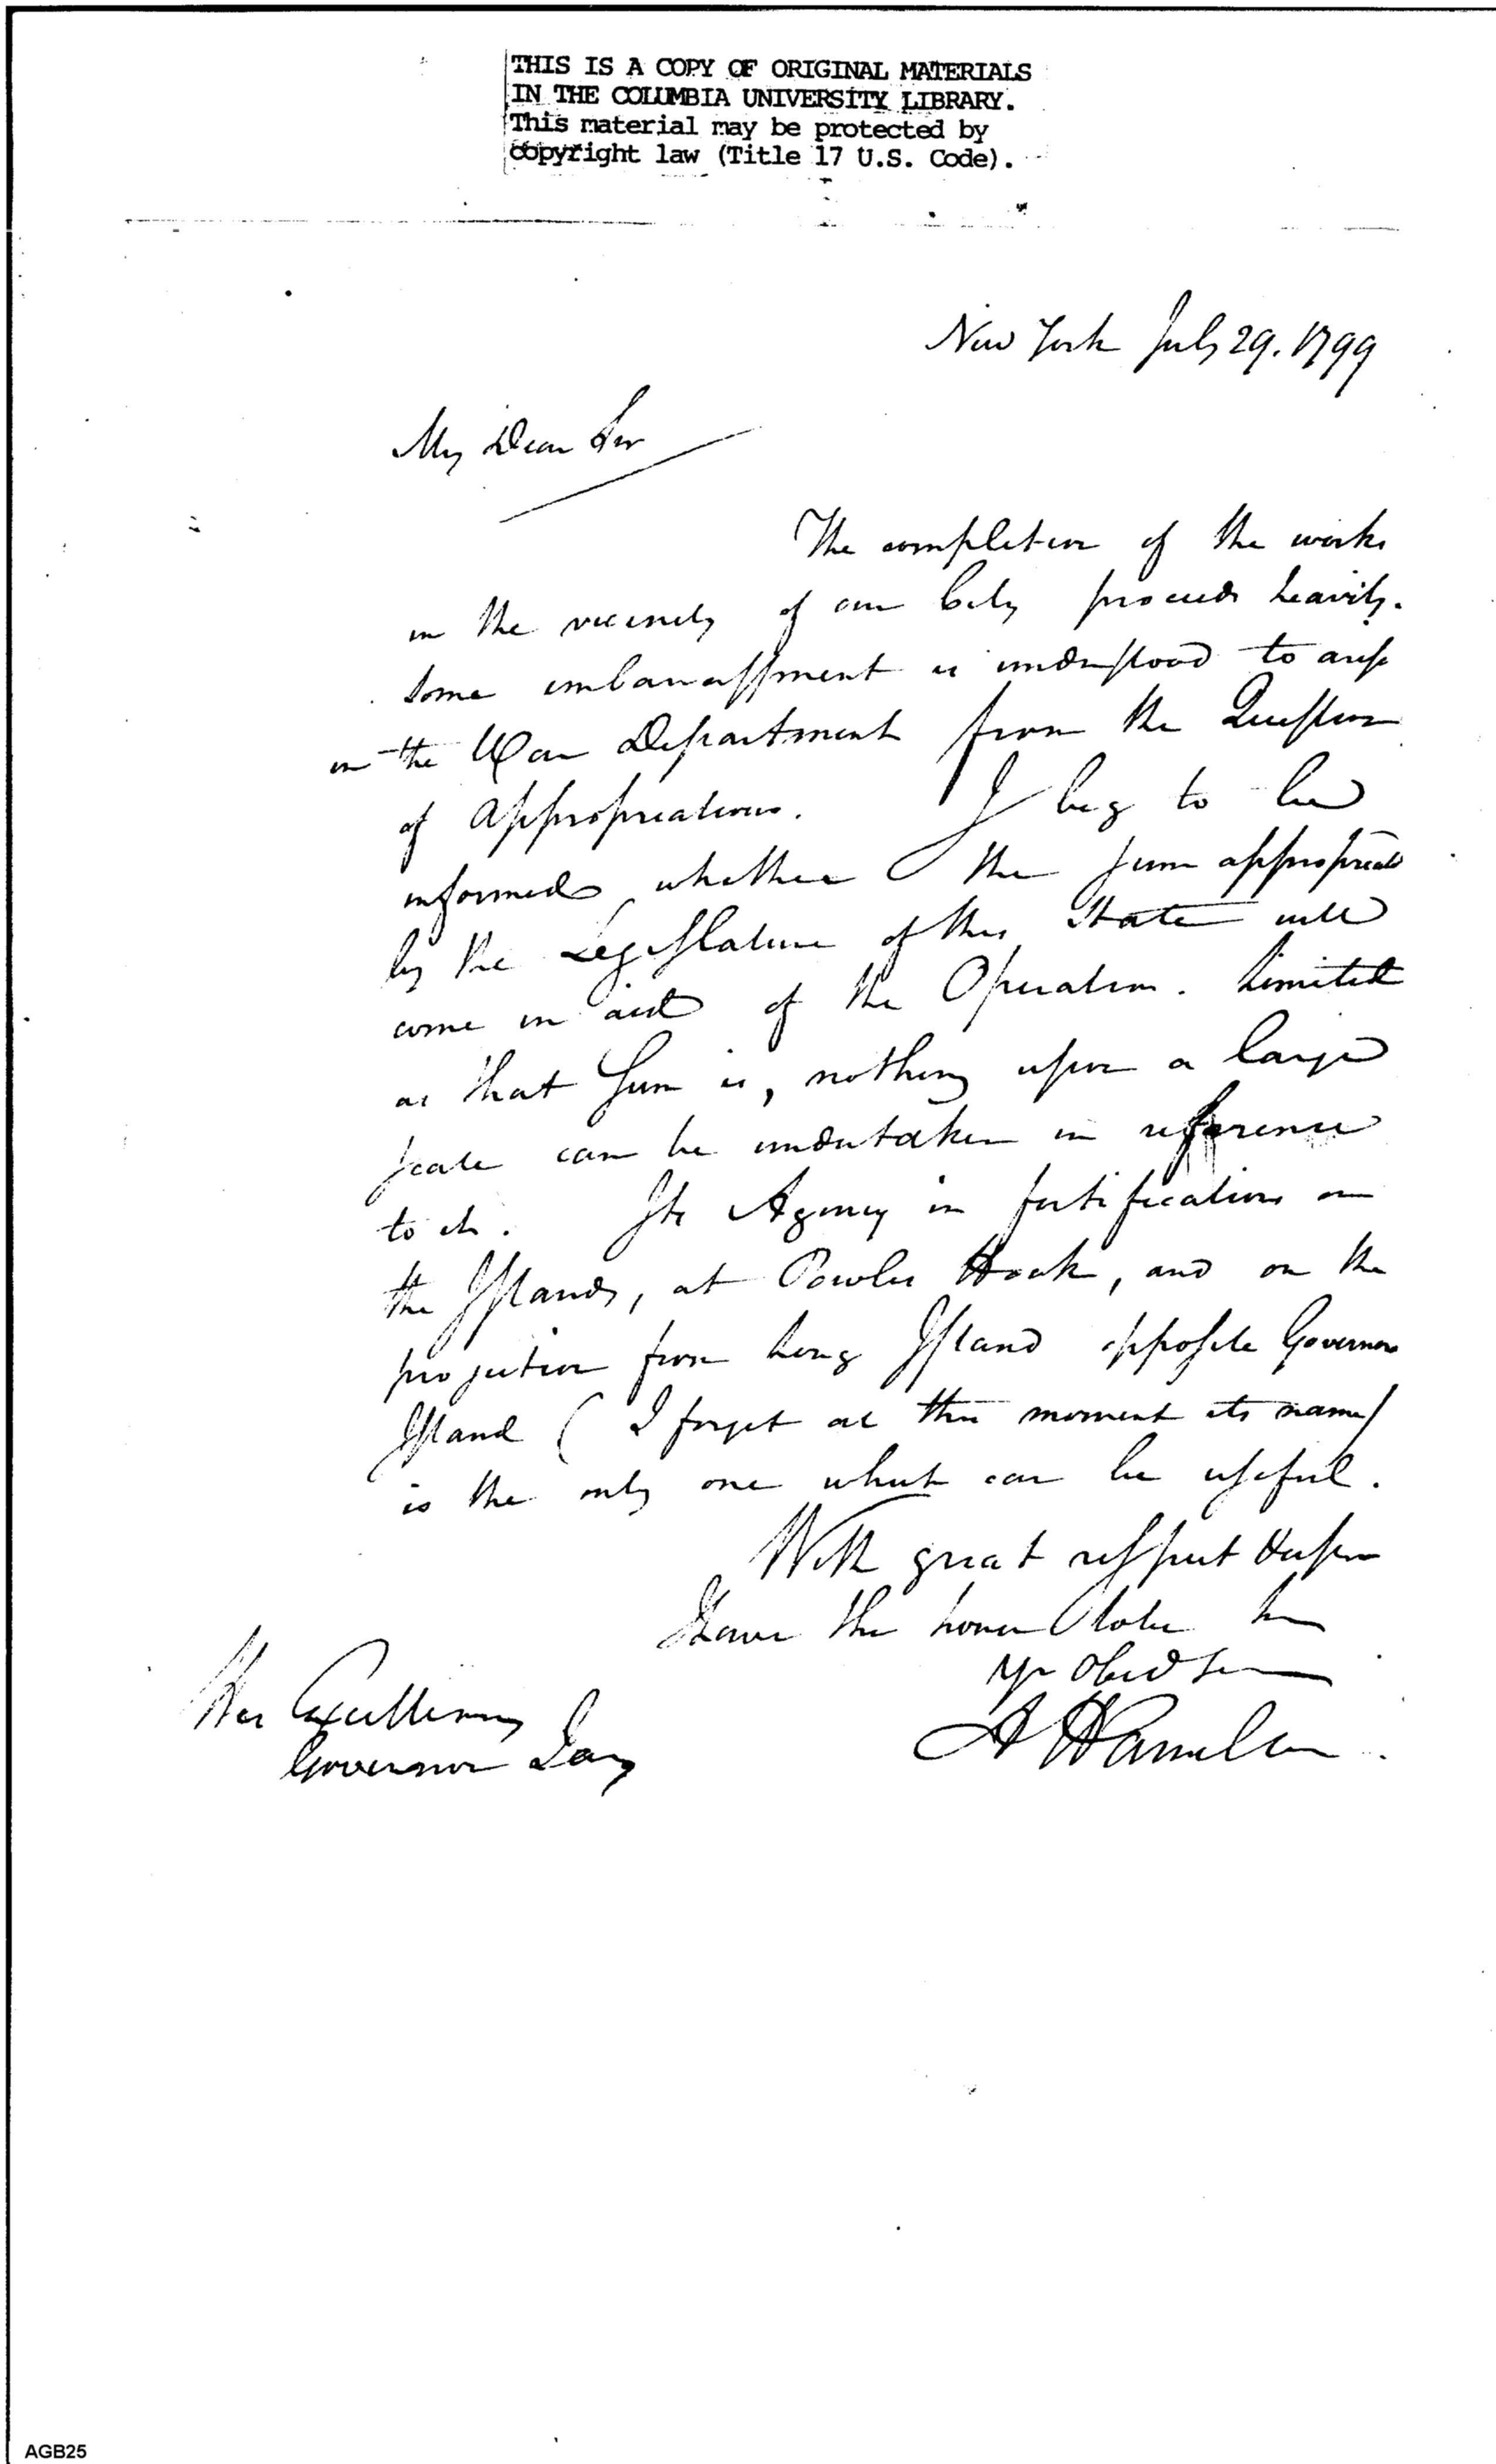 THIS IS A COPY OF ORIGINAL MATERIALS
IN THE COLUMBIA UNIVERSITY LIBRARY.
This material may be protected by
copyright law (Title 17 U.S. Code).
New York July 29. 1799
My Dear Sir
The completion of the works
in the vicinity of our City proceeds heavily.
Some embarrassment is understood to arise
in the War Department from the Question
of Appropriations. I beg to be
informed whether the sum appropriated
by the Legislature of this State will
come in aid of the Operation. Limited
as that sum is, nothing upon a large
scale can be undertaken in reference
to it. Its Agency in fortifications on
the Islands, at Powles Hook, and on the
projection from Long Island opposite Governors
Island ( I forget at this moment its name)
is the only one which can be useful.
With great respect & esteem
I have the honor to be Sir
Yr Obed Ser
A Hamilton
His Excellency
Governor Jay
AGB25